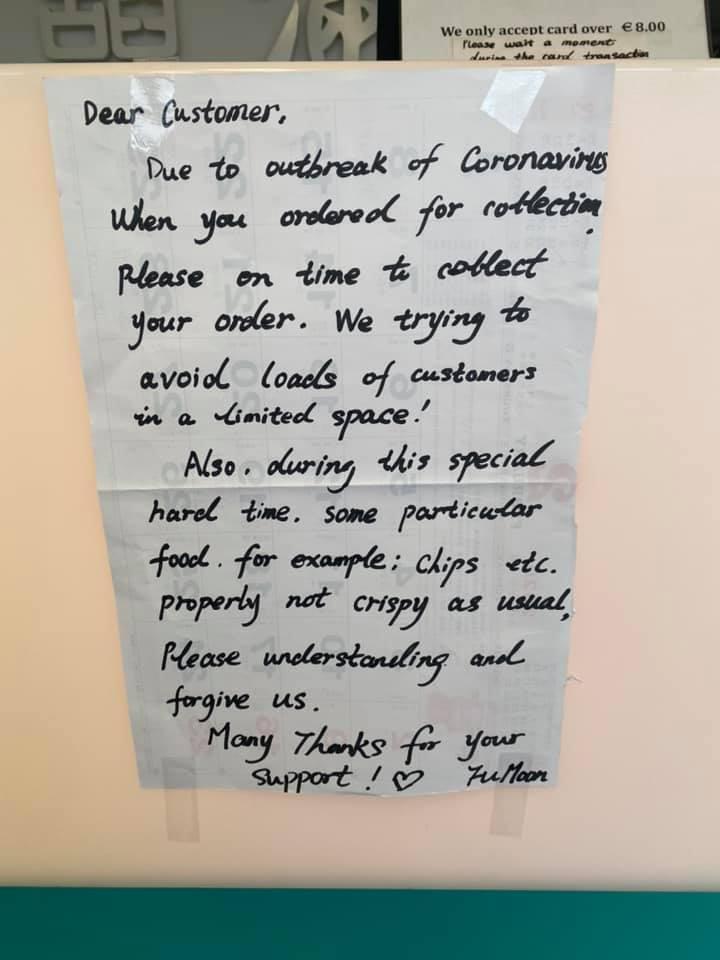 We only accept card over €8.00
Please wait a moment
during the card transaction
Dear Customer,
Due to outbreak of Coronavirus
When you ordered for collection,
Please on time to collect
your order. We trying to
avoid loads of customers
in a limited space!
Also, during this special
hard time. some particular
food. for example: Chips etc.
properly not crispy as usual,
Please understanding and
forgive us.
Many Thanks for your
support! ♡ FuMoon